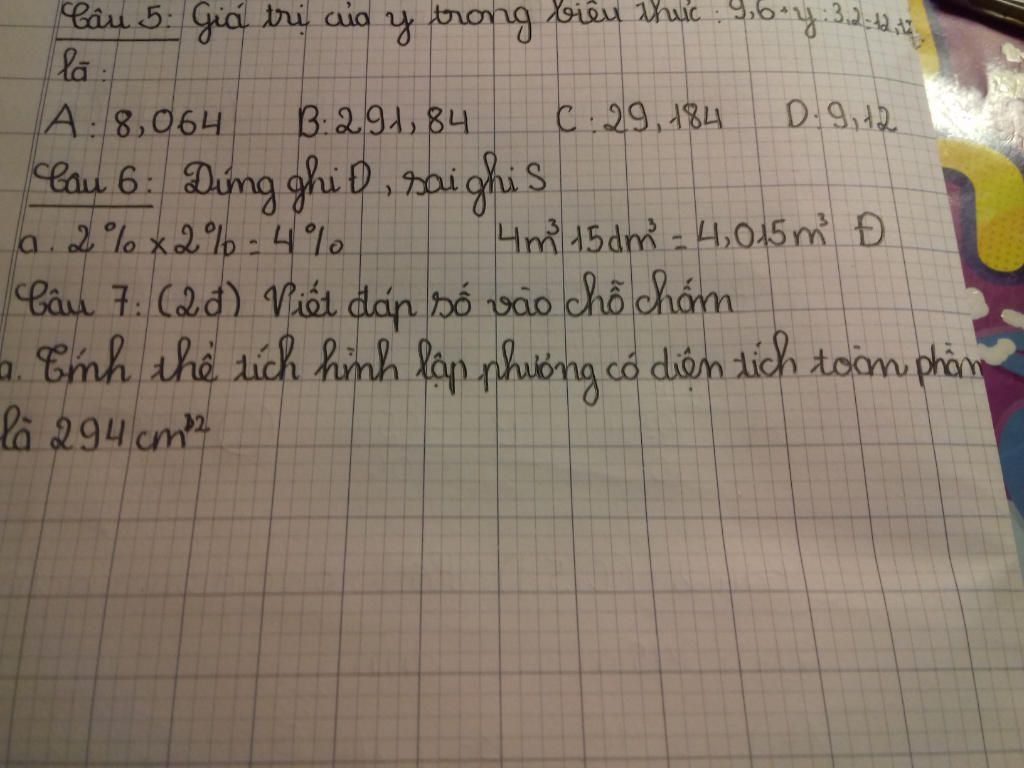 Câu 5: Giá trị của y trong biểu thức: 9,6 + y : 3,2 = 12,12
là:
A: 8,064 B: 291,84 C: 29,184 D: 9,12
Câu 6: Đúng ghi Đ, sai ghi S
a. 2% x 2% = 4% 4m³ 15dm³ = 4,015m³ Đ
Câu 7: (2đ) Viết đáp số vào chỗ chấm
a. Tính thể tích hình lập phương có diện tích toàn phần
là 294 cm²